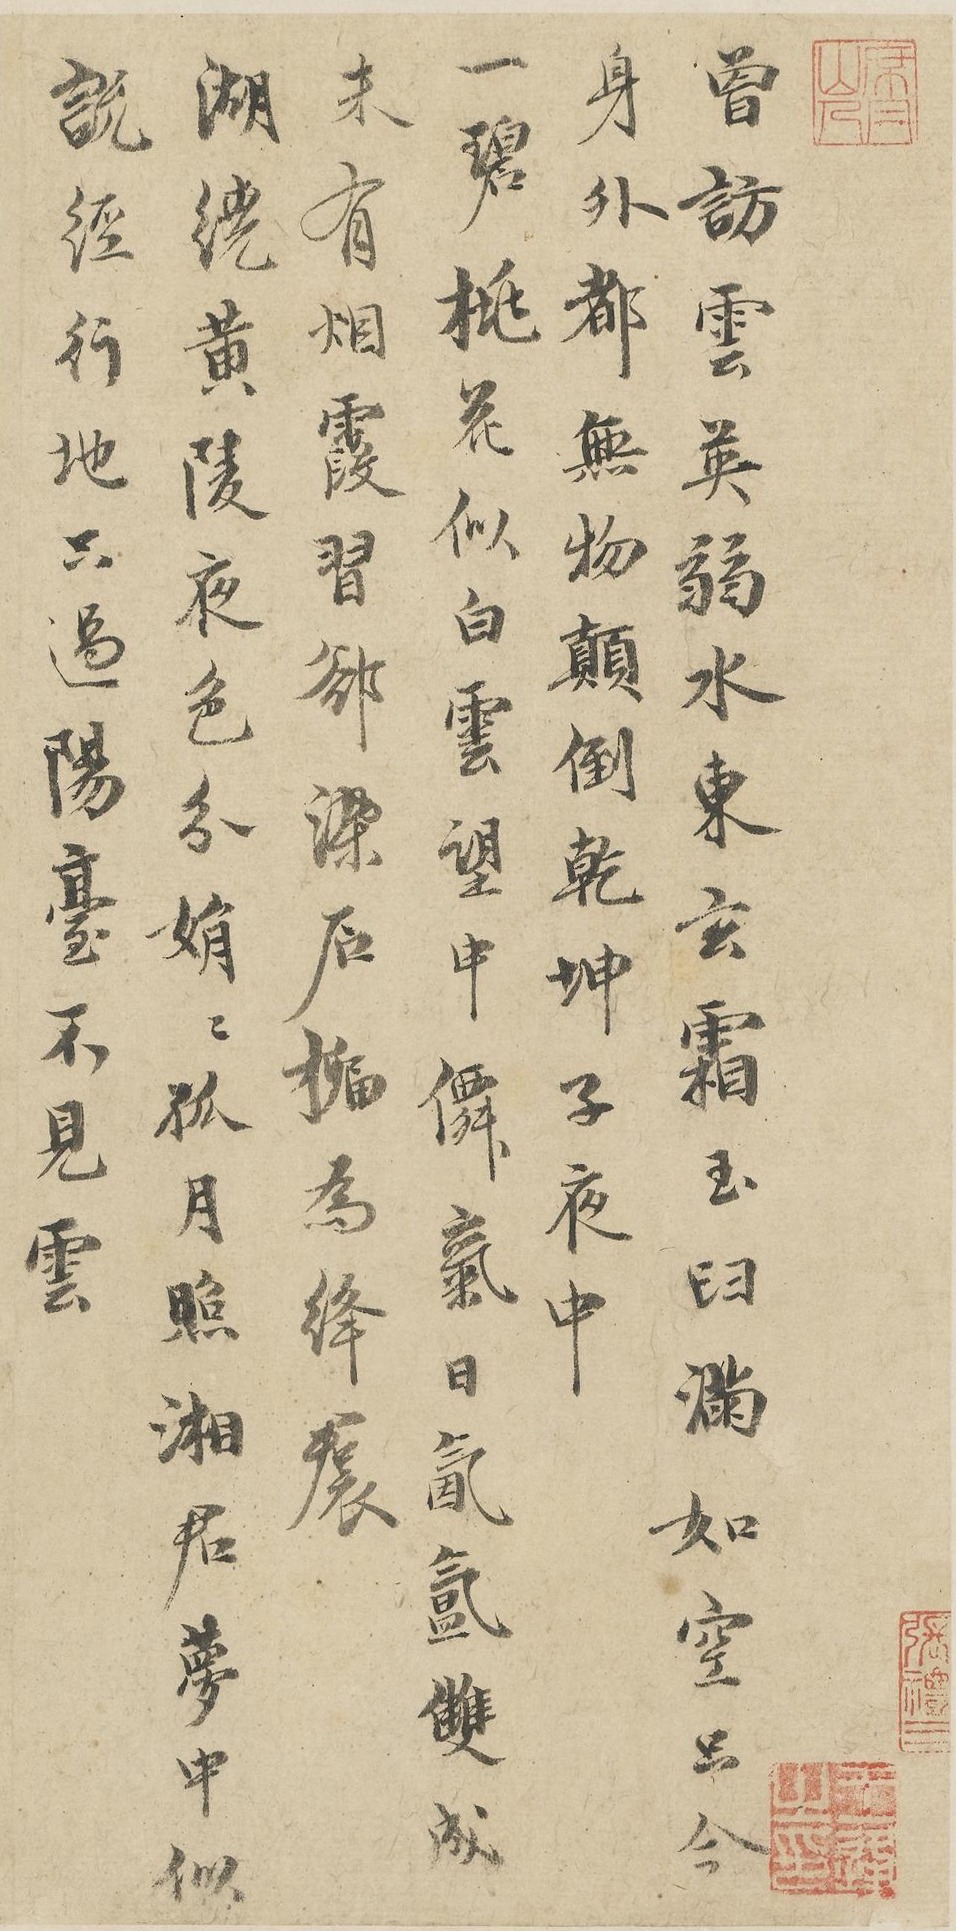 曾訪雲英弱水東玄霜玉臼滿如空只今
身外都無物顛倒乾坤子夜中
一碧桃花似白雲望中僊氣日氤氳雙成
未有烟霞習卻染石榴為絳裠
湖繞黃陵夜色分娟〻孤月照湘君夢中似
說經行地只過陽臺不見雲
張禮